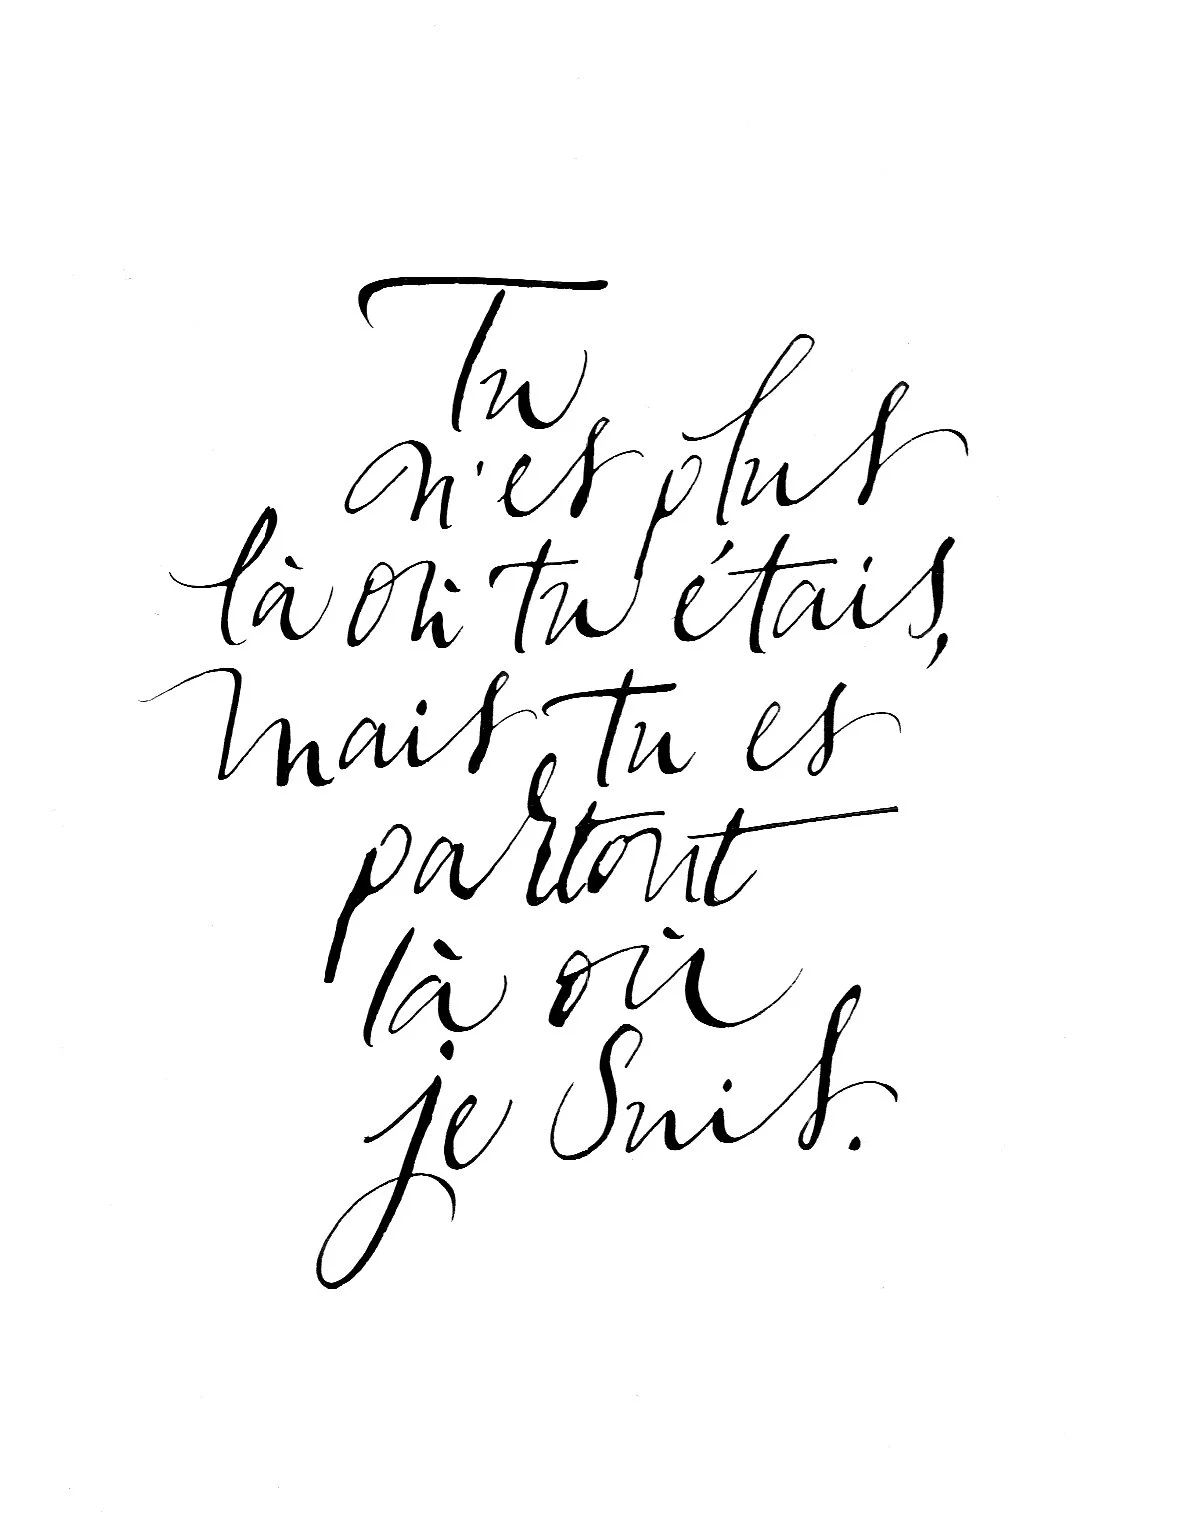 Tu
n'es plus
là où tu étais,
mais tu es
partout
là où
je suis.